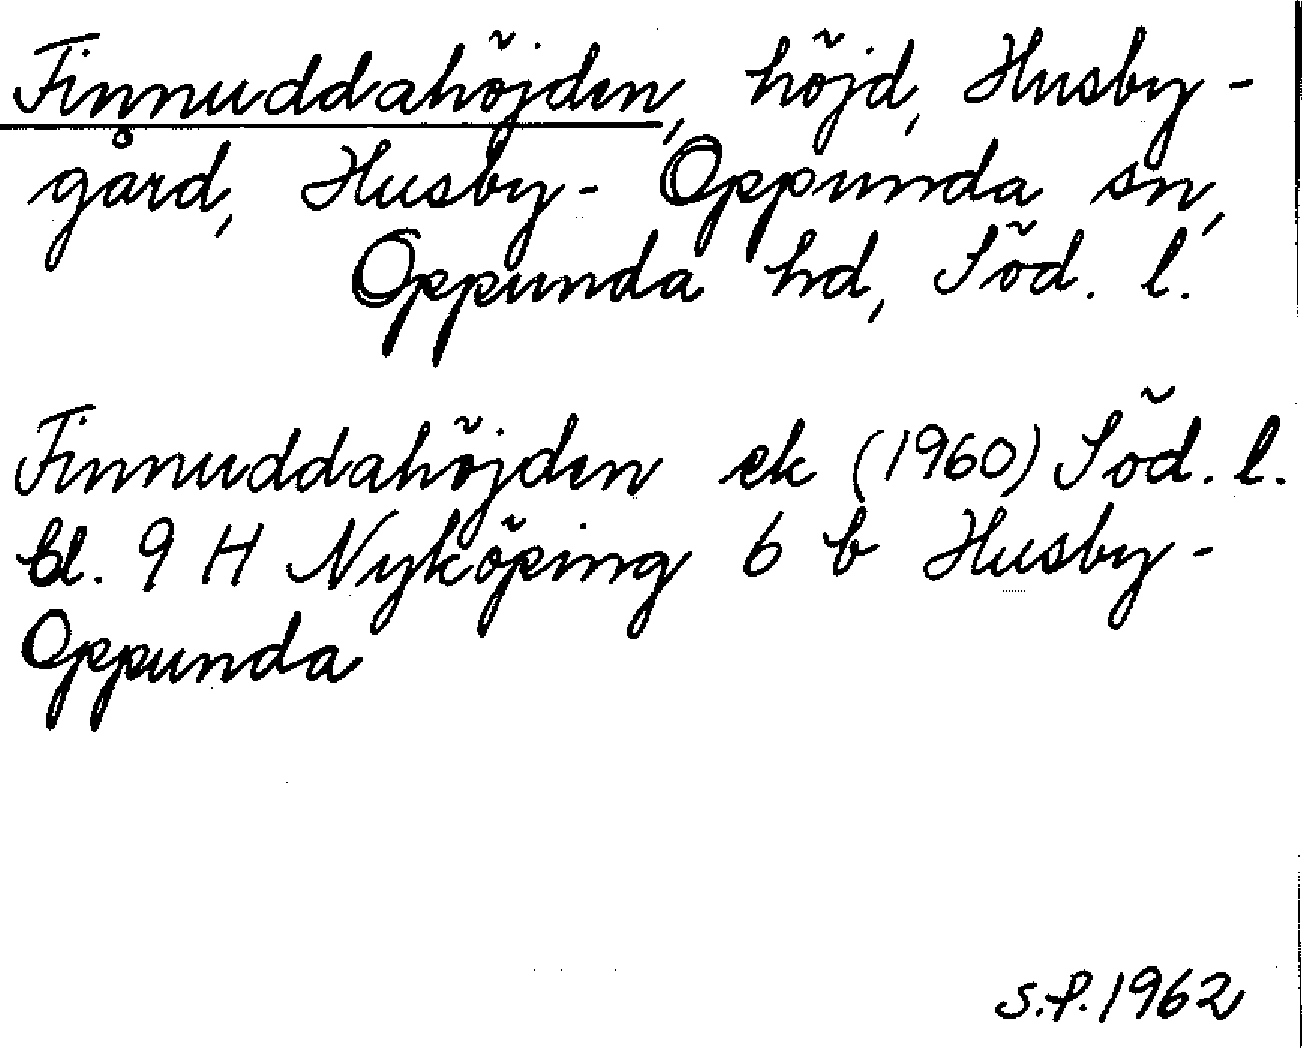 Finnuddahöjden, höjd, Husby-
gård, Husby-Oppunda sn,
Oppunda hd, Söd. l.
Finnuddahöjden ek (1960) Söd. l.
bl. 9 H Nyköping 6 b Husby-
Oppunda
S.P. 1962